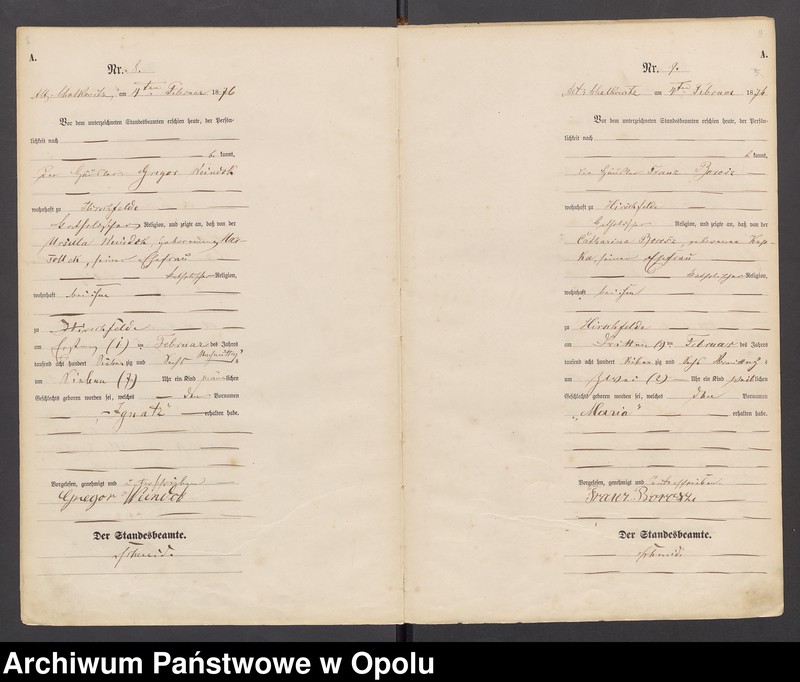 A.
Nr. 8.
am 4ten Februar 1876
Vor dem unterzeichneten Standesbeamten erschien heute, der Persön-
lichkeit nach
be kannt,
Der Häusler Gregor
wohnhaft zu Hirschfelde
Religion, und zeigte an, daß von der
geborenen
seiner Ehefrau
katholischer Religion,
wohnhaft bei ihm
zu Hirschfelde
am Ersten (1) ten Februar des Jahres
tausend acht hundert sieben zig und sechs Nachmittags
um Sieben (7) Uhr ein Kind männlichen
Geschlechts geboren worden sei, welches den Vornamen
"Ignatz" erhalten habe.
Vorgelesen, genehmigt und unterschrieben
Gregor
Der Standesbeamte.
Schmid.
A.
Nr. 9.
am 4ten Februar 1876
Vor dem unterzeichneten Standesbeamten erschien heute, der Persön-
lichkeit nach
be kannt,
der Häusler Franz
wohnhaft zu Hirschfelde
katholischer Religion, und zeigte an, daß von der
Catharina geborenen
seiner Ehefrau
katholischer Religion,
wohnhaft bei ihm
zu Hirschfelde
am Dritten (3) ten Februar des Jahres
tausend acht hundert sieben zig und sechs Vormittags
um Zwei (2) Uhr ein Kind weiblichen
Geschlechts geboren worden sei, welches den Vornamen
"Maria" erhalten habe.
Vorgelesen, genehmigt und unterschrieben
Franz
Der Standesbeamte.
Schmid.
Archiwum Państwowe w Opolu